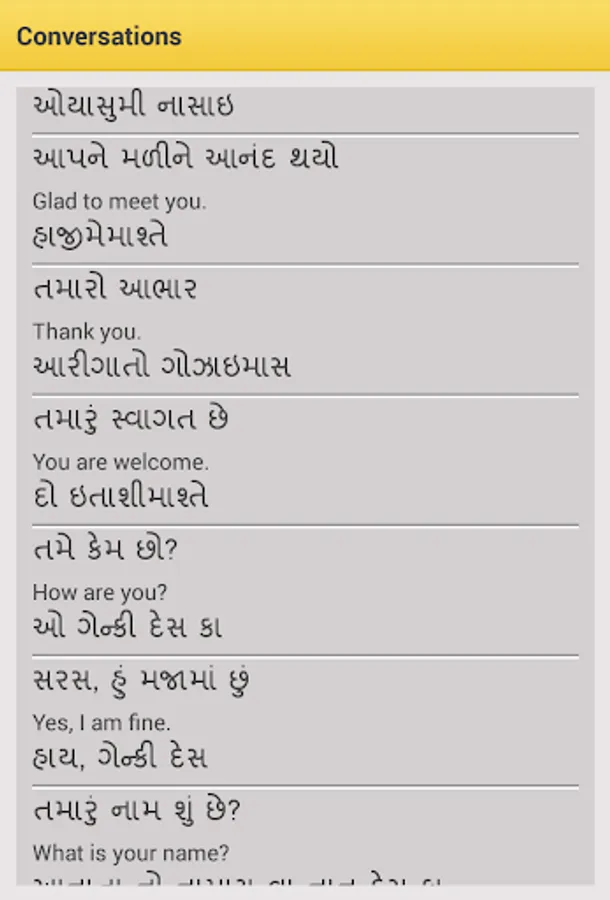 Conversations
ઓયાસુમી નાસાઇ
આપને મળીને આનંદ થયો
Glad to meet you.
હાજીમેમાશ્તે
તમારો આભાર
Thank you.
આરીગાતો ગોઝાઇમાસ
તમારું સ્વાગત છે
You are welcome.
દો ઇતાશીમાશ્તે
તમે કેમ છો?
How are you?
ઓ ગેન્કી દેસ કા
સરસ, હું મજામાં છું
Yes, I am fine.
હાય, ગેન્કી દેસ
તમારું નામ શું છે?
What is your name?